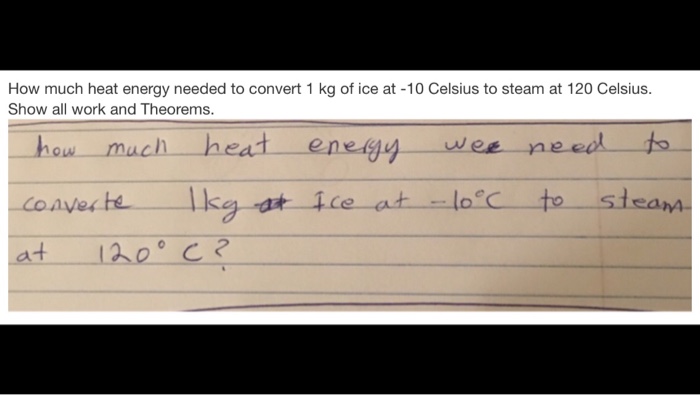 How much heat energy needed to convert 1 kg of ice at -10 Celsius to steam at 120 Celsius.
Show all work and Theorems.
how much heat energy wee need to
converte 1kg at Ice at -10°C to steam
at 120° C?